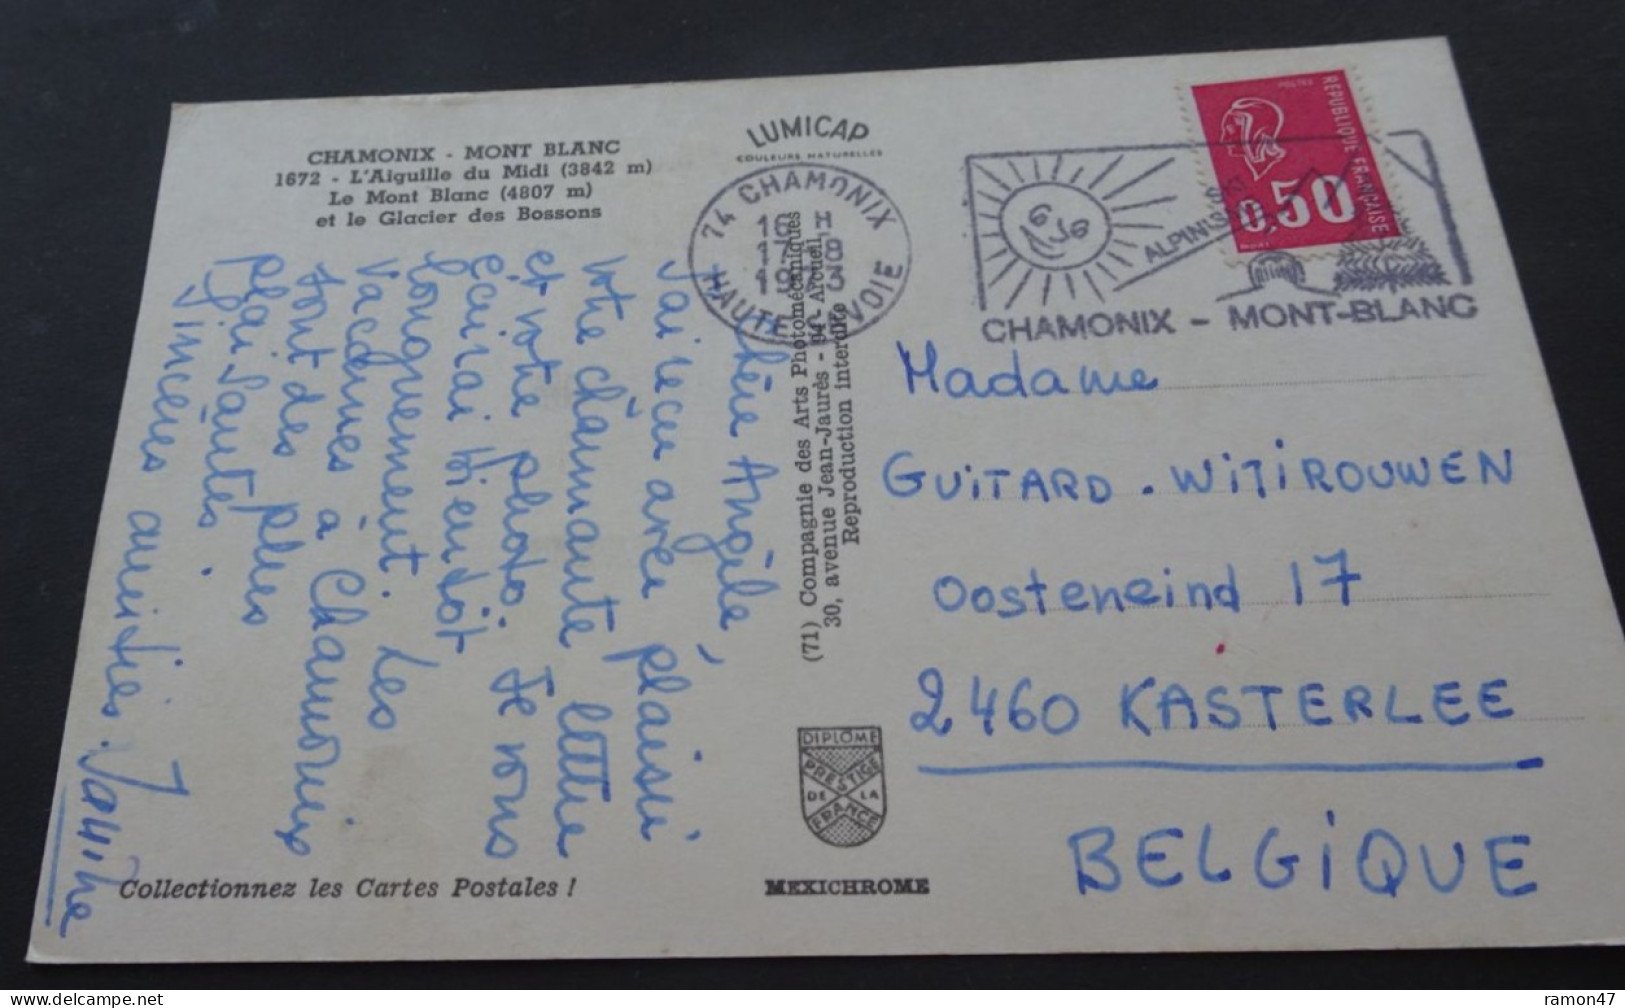 CHAMONIX - MONT BLANC
1672 - L'Aiguille du Midi (3842 m)
Le Mont Blanc (4807 m)
et le Glacier des Bossons
LUMICAP
COULEURS NATURELLES
74 CHAMONIX
16 H
17-8
1973
HAUTE SAVOIE
POSTES
REPUBLIQUE FRANÇAISE
0,50
ALPINISME
CHAMONIX - MONT-BLANC
Chère Angèle,
J'ai reçu avec plaisir
votre charmante lettre
et votre photo. Je vous
écrirai bientôt
longuement. Les
vacances à Chamonix
sont des plus
plaisantes.
Sincères amitiés.
(71) Compagnie des Arts Photomécaniques
30, avenue Jean-Jaurès - 94 - Arcueil
Reproduction interdite
Madame
GUITARD - WITIROUWEN
Oosteneind 17
2460 KASTERLEE
BELGIQUE
DIPLOME
PRESTIGE
DE LA
FRANCE
Collectionnez les Cartes Postales !
MEXICHROME
ramon47